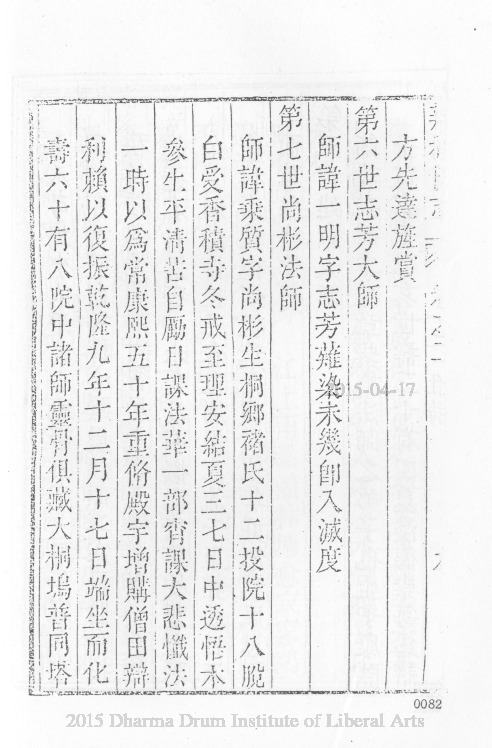 方先達旌賞
第六世志芳大師
師諱一明字志芳薙染未幾卽入滅度
第七世尚彬法師
師諱乘質字尚彬生桐鄉褚氏十二投院十八脫
白受香積寺冬戒至理安結夏三七日中透悟本
參生平清苦自勵日課法華一部宵課大悲懺法
一時以爲常康熙五十年重脩殿宇增購僧田辯
利賴以復振乾隆九年十二月十七日端坐而化
壽六十有八院中諸師靈骨俱藏大桐塢普同塔
2015-04-17
0082
2015 Dharma Drum Institute of Liberal Arts